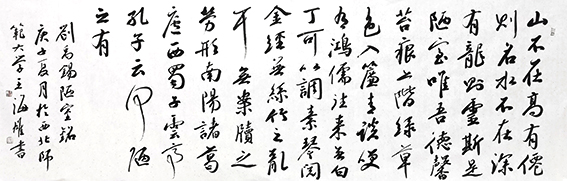 山不在高有僊
则名水不在深
有龍则靈斯是
陋室唯吾德馨
苔痕上階綠草
色入簾青談咲
有鴻儒往来無白
丁可以調素琴閲
金經無絲竹之亂
耳無案牘之
劳形南陽諸葛
廬西蜀子雲亭
孔子云何陋
之有
劉禹錫陋室銘
庚子夏月於西北師
範大学海書